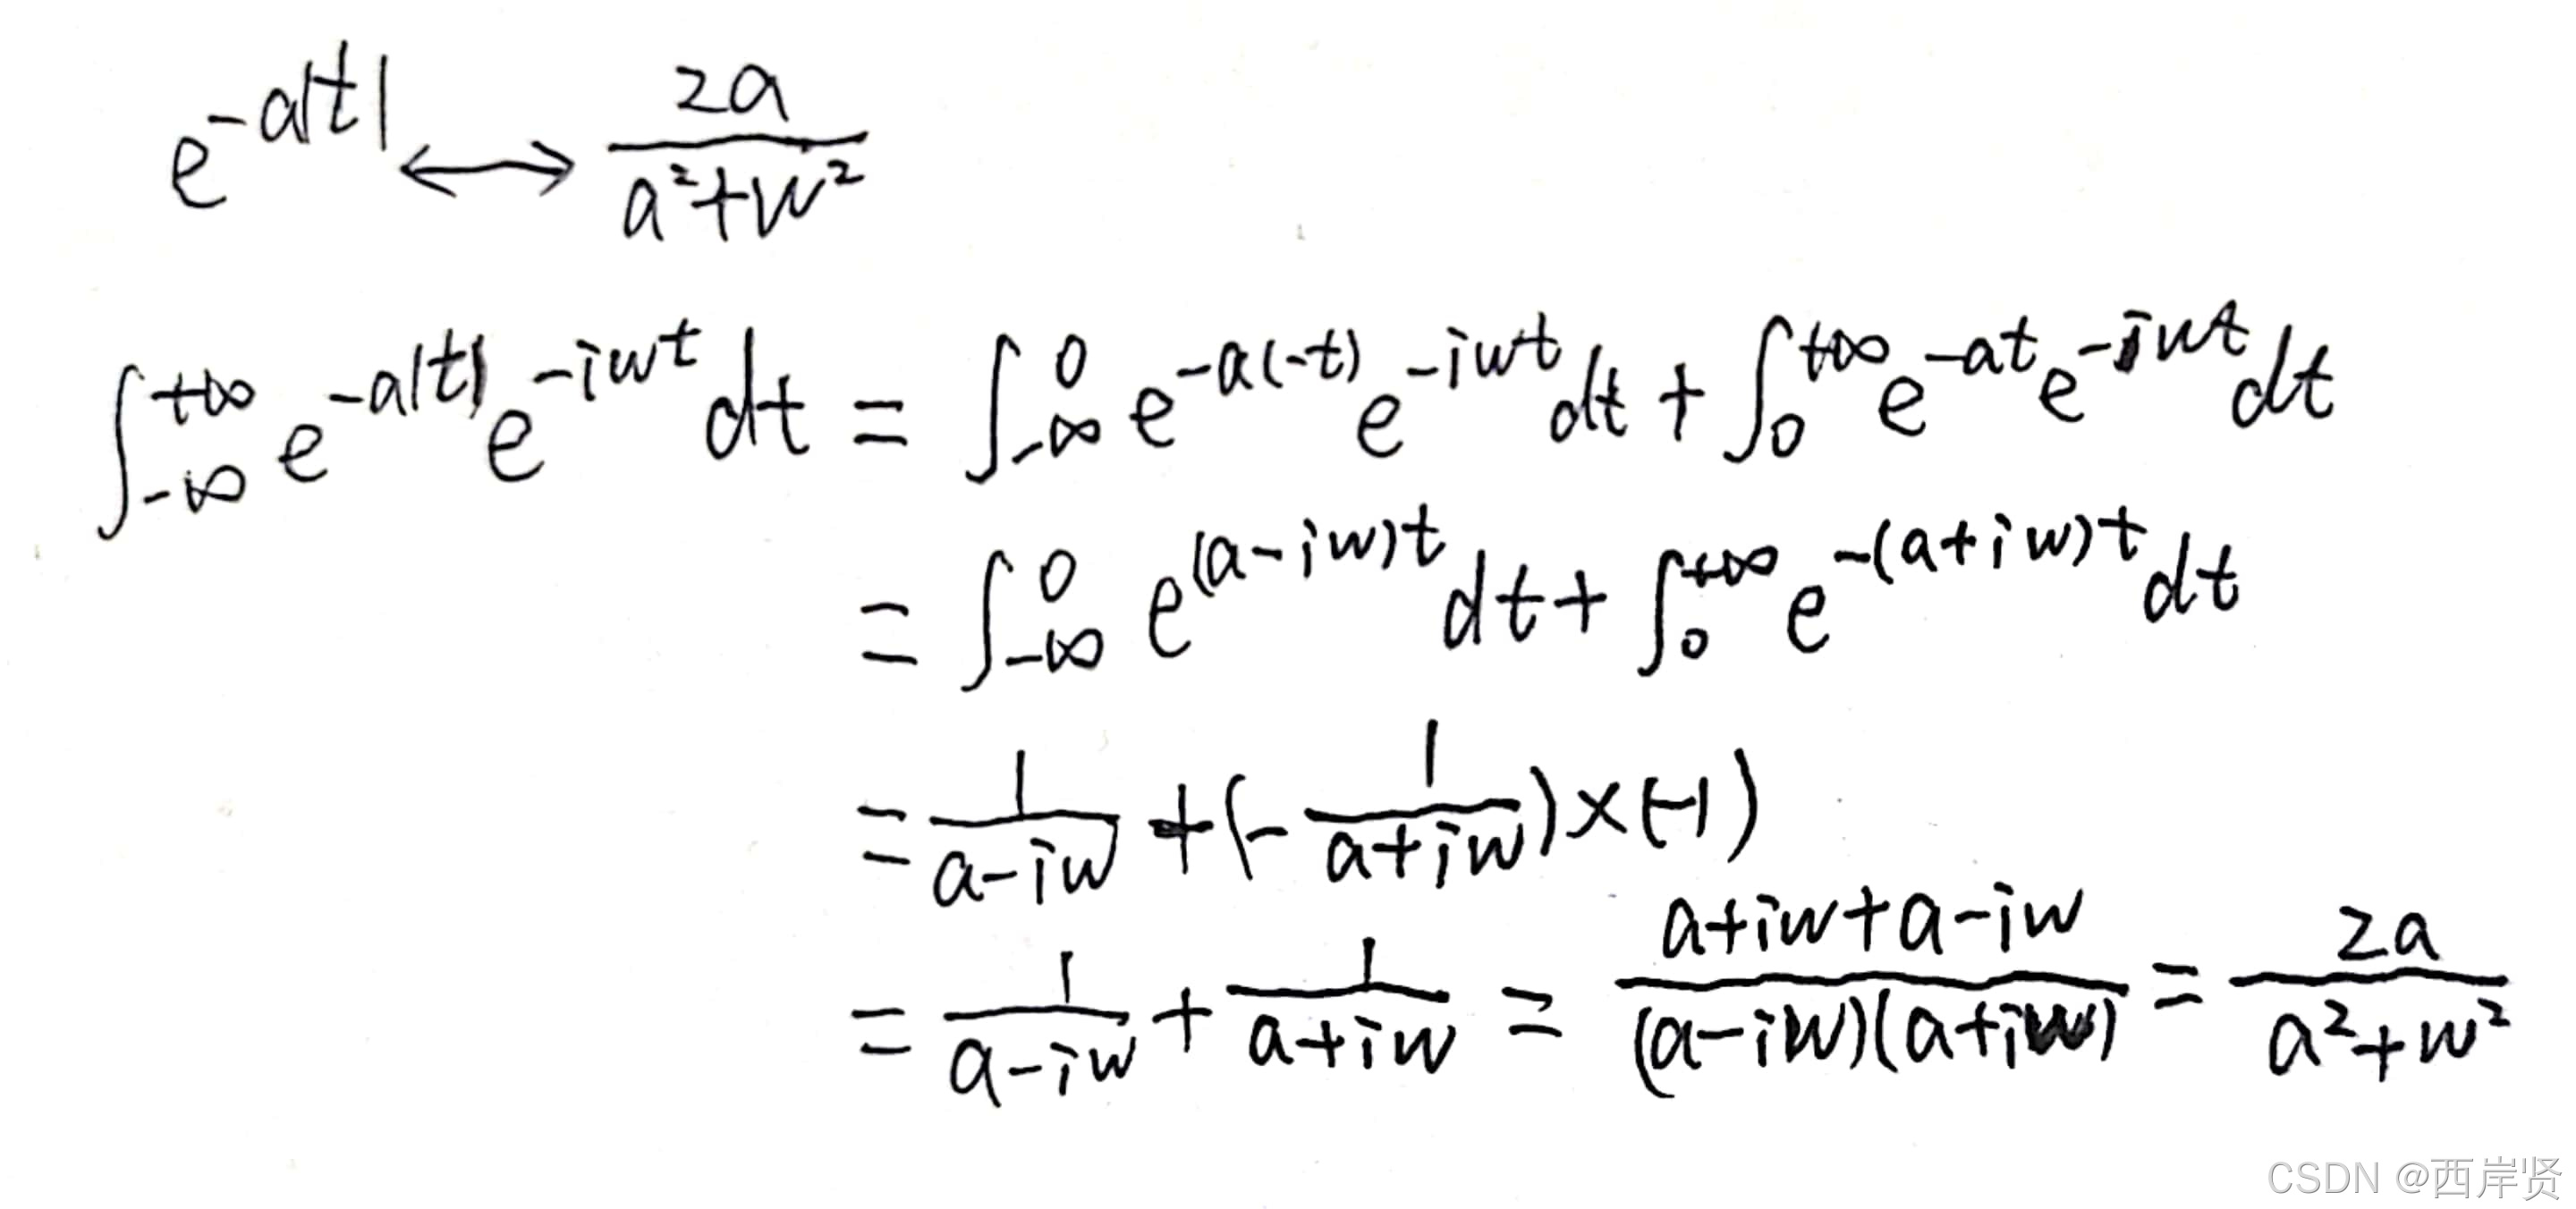 e^{-a|t|} ⟷ \frac{2a}{a^2+w^2}
\int_{-\infty}^{+\infty} e^{-a|t|} e^{-iwt} dt = \int_{-\infty}^{0} e^{-a(-t)} e^{-iwt} dt + \int_{0}^{+\infty} e^{-at} e^{-iwt} dt
= \int_{-\infty}^{0} e^{(a-iw)t} dt + \int_{0}^{+\infty} e^{-(a+iw)t} dt
= \frac{1}{a-iw} + (-\frac{1}{a+iw}) × (-1)
= \frac{1}{a-iw} + \frac{1}{a+iw} = \frac{a+iw+a-iw}{(a-iw)(a+iw)} = \frac{2a}{a^2+w^2}
CSDN @西岸贤